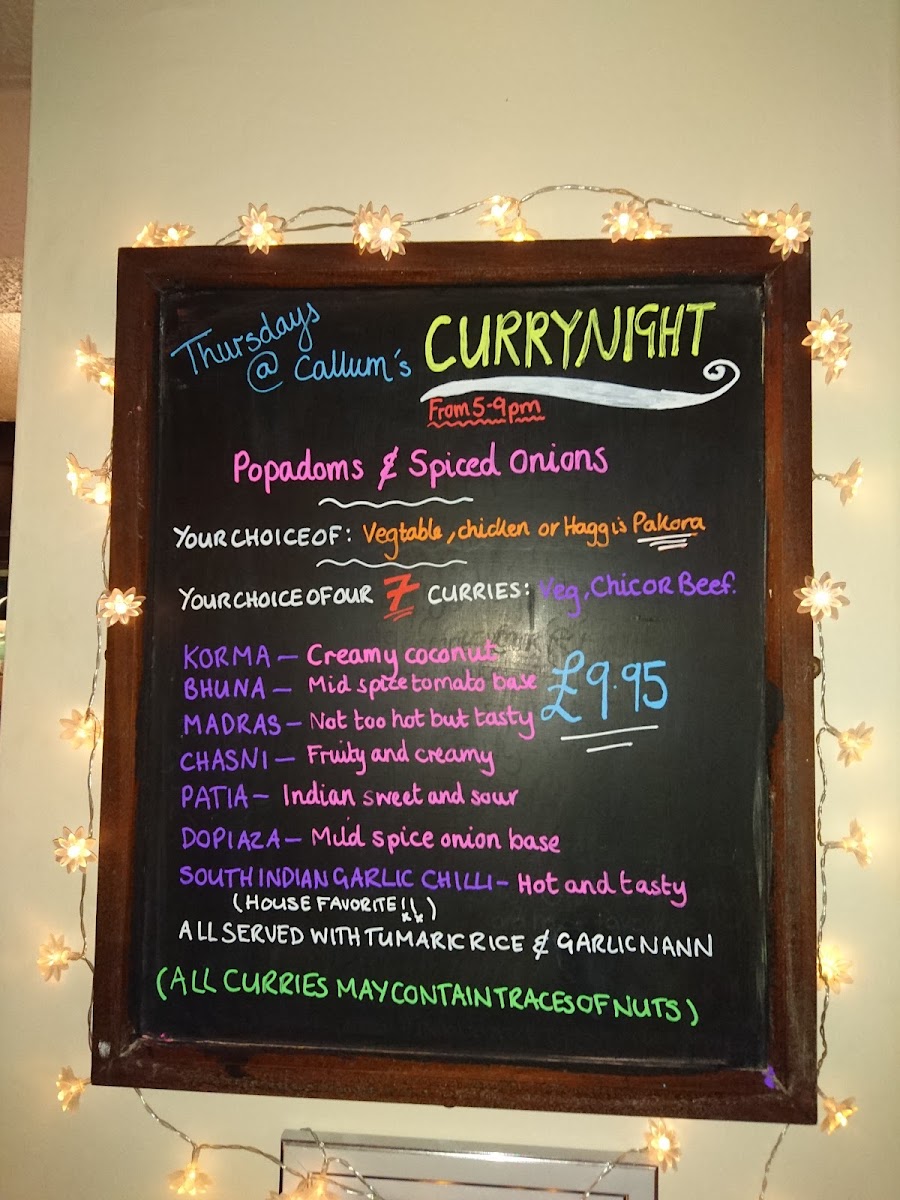 Thursdays
@ Callum's
CURRYNIGHT
From 5-9pm
Popadoms & Spiced Onions
YOUR CHOICE OF: Vegtable, chicken or Haggis Pakora
YOUR CHOICE OF OUR 7 CURRIES: Veg, Chic or Beef.
KORMA – Creamy coconut
BHUNA – Mid spize tomato base
£9.95
MADRAS – Not too hot but tasty
CHASNI – Fruity and creamy
PATIA – Indian sweet and sour
DOPIAZA – Mild spice onion base
SOUTH INDIAN GARLIC CHILLI – Hot and tasty
(HOUSE FAVORITE!!)
ALL SERVED WITH TUMARIC RICE & GARLIC NANN
(ALL CURRIES MAY CONTAIN TRACES OF NUTS)